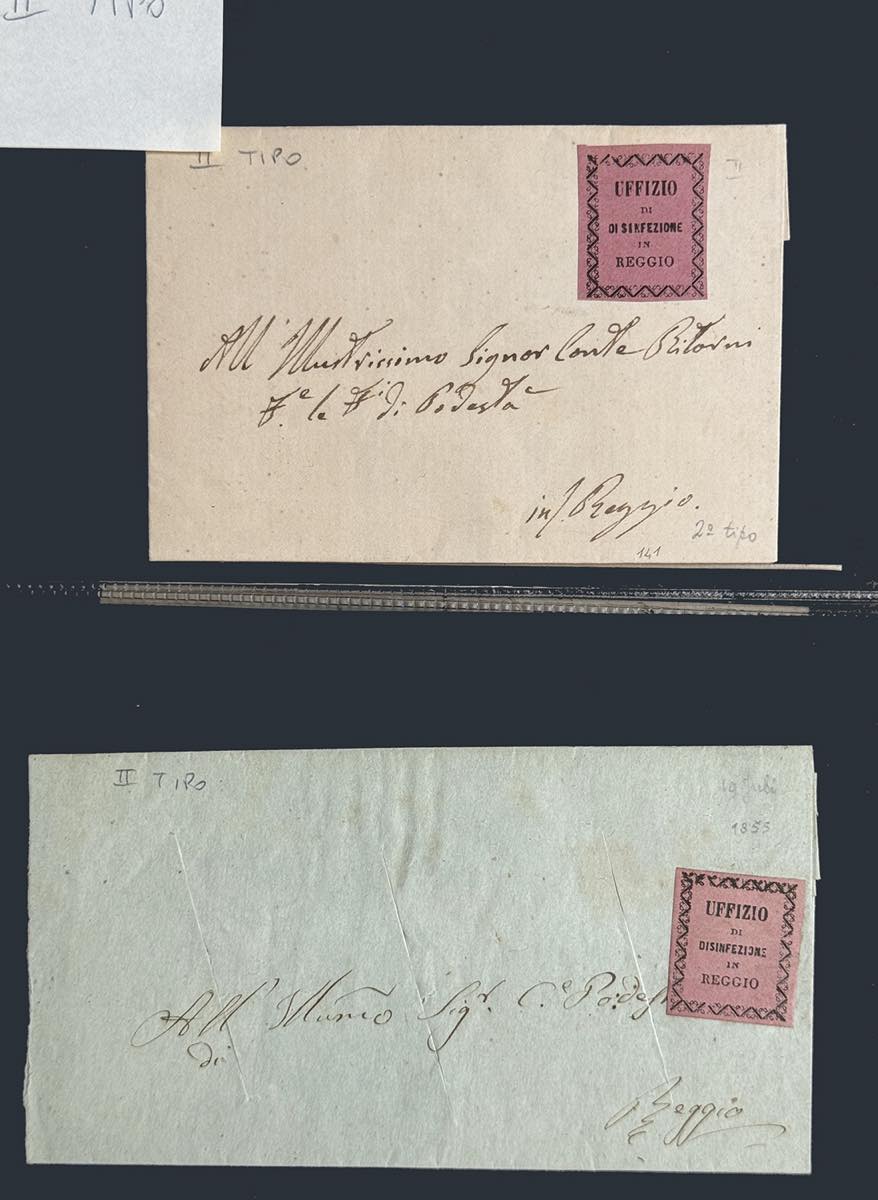 II TIPO
II TIPO
II
UFFIZIO
DI
DISINFEZIONE
IN
REGGIO
All' Illustrissimo Signor Conte Ritorni
F.e le F.i di Podestà
in/ Reggio.
2º tipo
141
II TIPO
19
1855
UFFIZIO
DI
DISINFEZIONE
IN
REGGIO
All' Sigr. Ce Podes
di
Reggio